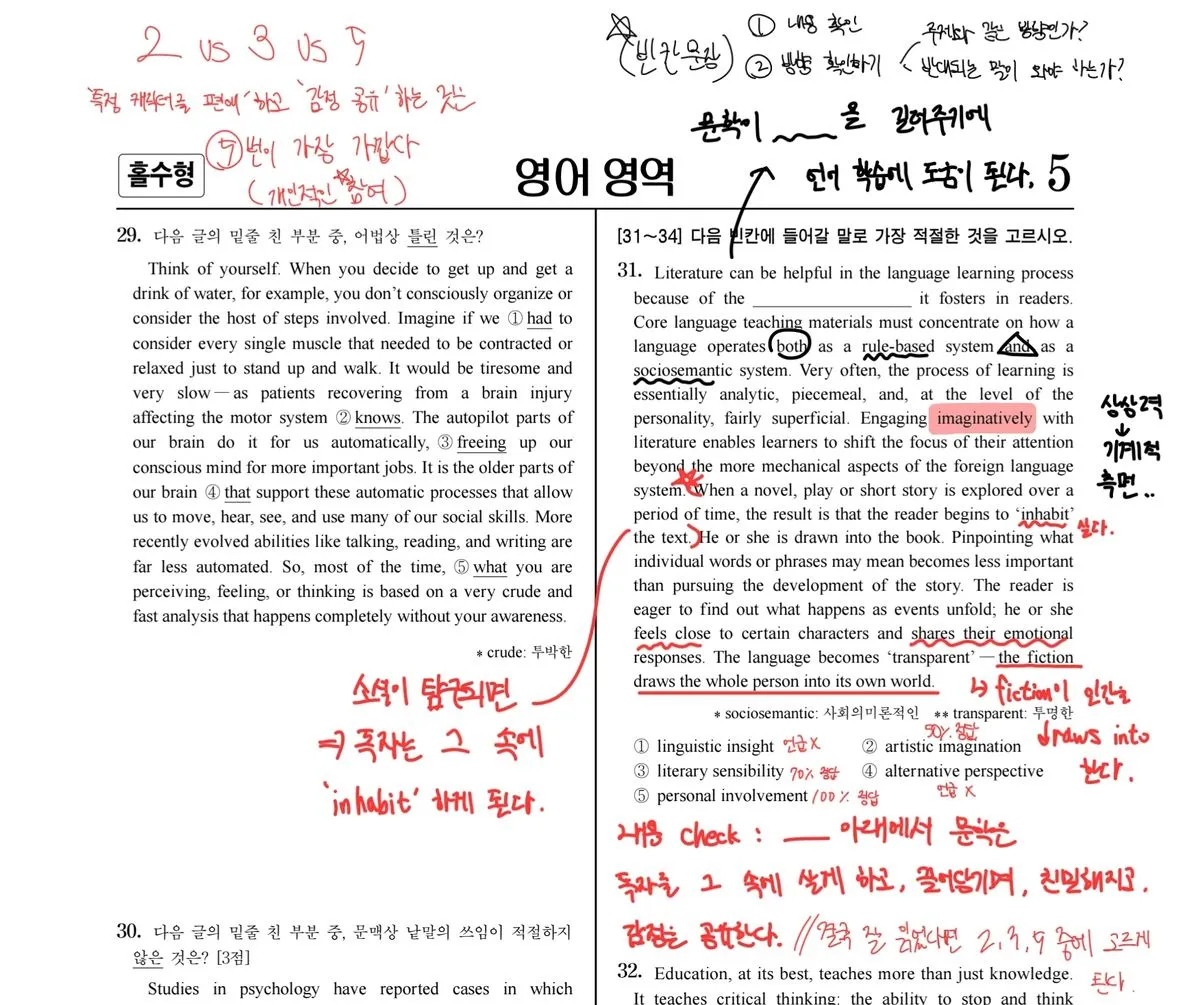 2 vs 3 vs 5
'특정 캐릭터를 편애'하고 '감정 공유'하는 것은
⑤번이 가장 가깝다
(개인적인 참여)
(빈칸문장)
① 내용 확인
② 방향 확인하기
주제와 같은 방향인가?
반대되는 말이 와야 하는가?
문학이 ____을 길러주기에
언어 학습에 도움이 된다.
홀수형
영어 영역
5
29. 다음 글의 밑줄 친 부분 중, 어법상 틀린 것은?
Think of yourself. When you decide to get up and get a
drink of water, for example, you don't consciously organize or
consider the host of steps involved. Imagine if we ① had to
consider every single muscle that needed to be contracted or
relaxed just to stand up and walk. It would be tiresome and
very slow — as patients recovering from a brain injury
affecting the motor system ② knows. The autopilot parts of
our brain do it for us automatically, ③ freeing up our
conscious mind for more important jobs. It is the older parts of
our brain ④ that support these automatic processes that allow
us to move, hear, see, and use many of our social skills. More
recently evolved abilities like talking, reading, and writing are
far less automated. So, most of the time, ⑤ what you are
perceiving, feeling, or thinking is based on a very crude and
fast analysis that happens completely without your awareness.
* crude: 투박한
소설이 탐구되면
⇒ 독자는 그 속에
'inhabit' 하게 된다.
30. 다음 글의 밑줄 친 부분 중, 문맥상 낱말의 쓰임이 적절하지
않은 것은? [3점]
Studies in psychology have reported cases in which
[31～34] 다음 빈칸에 들어갈 말로 가장 적절한 것을 고르시오.
31. Literature can be helpful in the language learning process
because of the ____________________ it fosters in readers.
Core language teaching materials must concentrate on how a
language operates both as a rule-based system and as a
sociosemantic system. Very often, the process of learning is
essentially analytic, piecemeal, and, at the level of the
personality, fairly superficial. Engaging imaginatively with
literature enables learners to shift the focus of their attention
beyond the more mechanical aspects of the foreign language
system. When a novel, play or short story is explored over a
period of time, the result is that the reader begins to 'inhabit'
the text. He or she is drawn into the book. Pinpointing what
individual words or phrases may mean becomes less important
than pursuing the development of the story. The reader is
eager to find out what happens as events unfold; he or she
feels close to certain characters and shares their emotional
responses. The language becomes 'transparent' — the fiction
draws the whole person into its own world.
상상력
↓
기계적
측면..
살다.
↳ fiction이 인간을
draws into
한다.
* sociosemantic: 사회의미론적인 ** transparent: 투명한
① linguistic insight 언급 X
② artistic imagination 50% 정답
③ literary sensibility 70% 정답
④ alternative perspective 언급 X
⑤ personal involvement 100% 정답
내용 check : ___ 아래에서 문학은
독자를 그 속에 살게 하고, 끌어당기며, 친밀해지고.
감정을 공유한다. // 결국 잘 읽었다면 2, 3, 5 중에 고르게
된다.
32. Education, at its best, teaches more than just knowledge.
It teaches critical thinking: the ability to stop and think